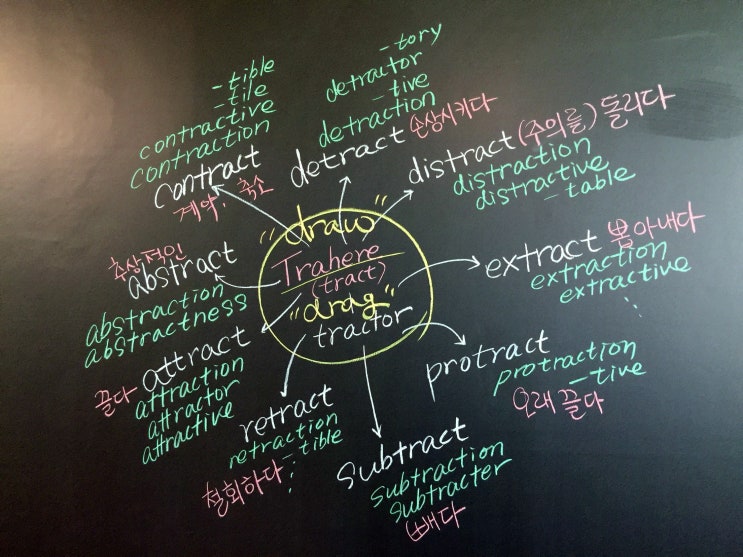 "draw"
Trahere
(tract)
"drag"
tractor
-tible
-tile
contractive
contraction
contract
계약, 축소
-tory
detractor
-tive
detraction
detract 손상시키다
distract (주의를) 돌리다
distraction
distractive
-table
extract 뽑아내다
extraction
extractive
protract
protraction
-tive
오래 끌다
subtract
subtraction
subtracter
빼다
retract
retraction
-tible
철회하다
끌다 attract
attraction
attractor
attractive
추상적인
abstract
abstraction
abstractness